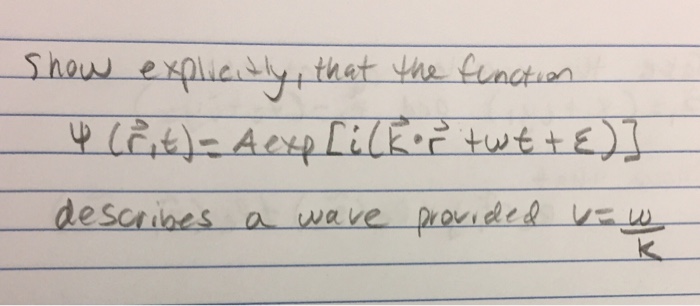 Show explicitly, that the function
ψ(r⃗,t)= A exp[i(k⃗•r⃗ +ωt+ε)]
describes a wave provided v= ω/k